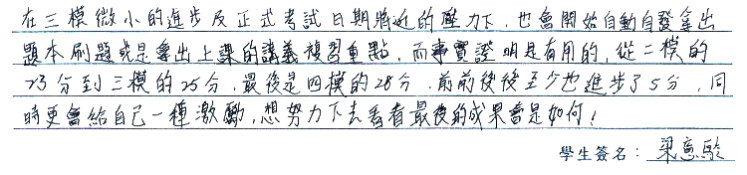 在三模微小的進步及正式考試日期將近的壓力下，也會開始自動自發拿出
題本刷題或是拿出上課的講義複習重點，而事實證明是有用的，從二模的
23分到三模的25分，最後是四模的28分，前前後後至少也進步了5分，同
時更會給自己一種激勵，想努力下去看看最後的成果會是如何！
學生簽名：梁意駿